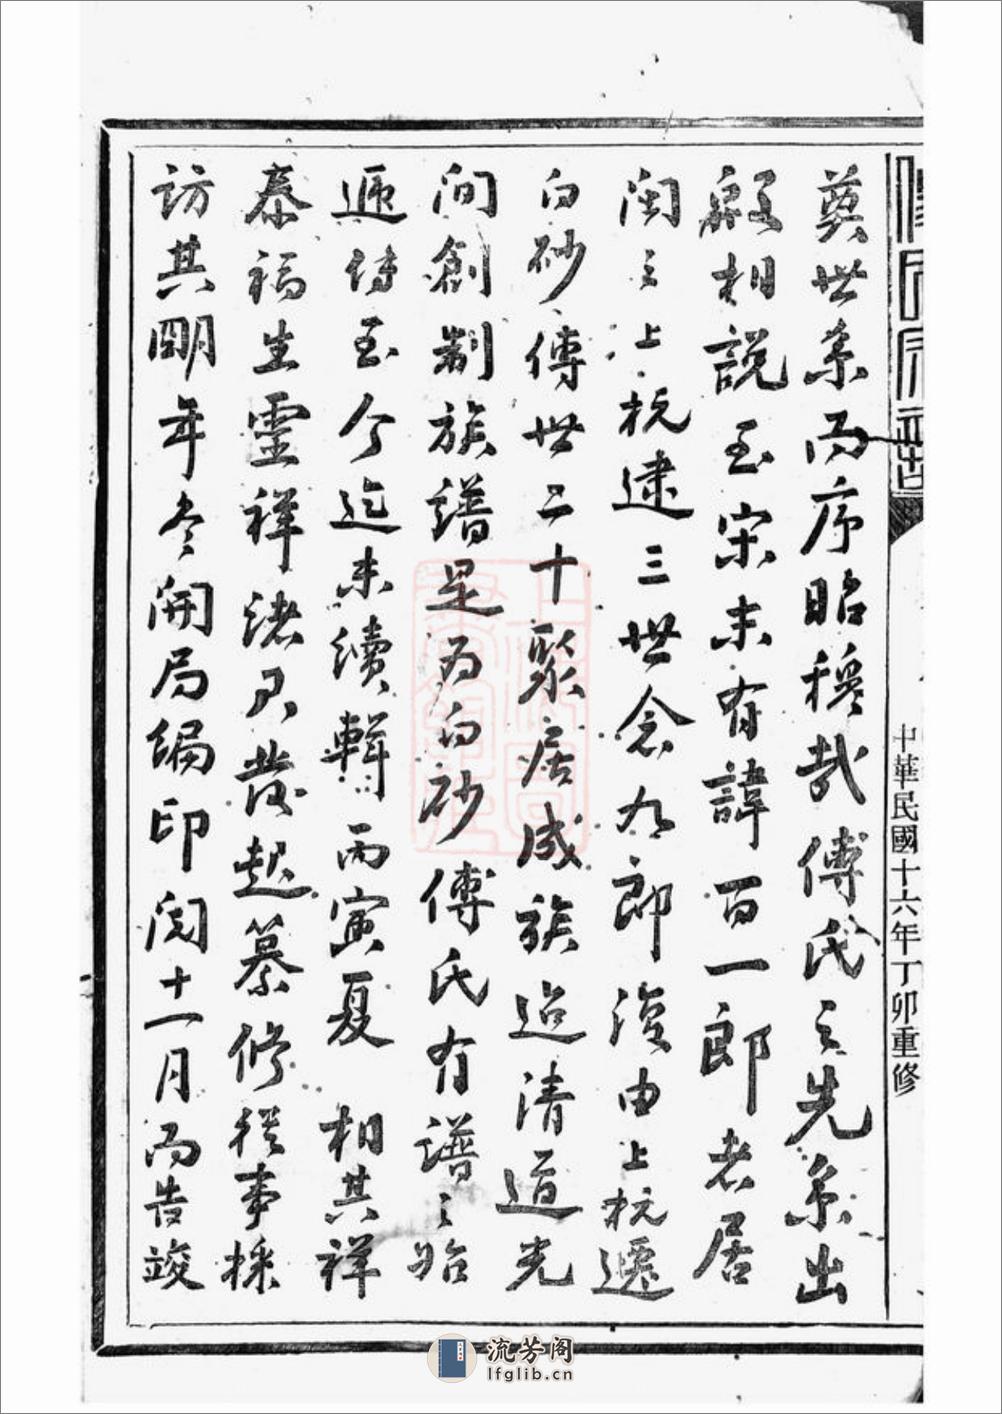 中華民國十六年丁卯重修
奠世系而序昭穆哉傅氏之先系出
殷相說至宋末有諱百一郎者居
閩之上杭逮三世念九郎復由上杭遷
白砂傳世二十聚居成族迨清道光
間創制族譜是為白砂傅氏有譜之始
遞傳至今迄未續輯丙寅夏 相其祥
泰福生靈祥諸君發起纂修從事採
訪其明年冬開局編印閱十一月而告竣
流芳阁
lfglib.cn